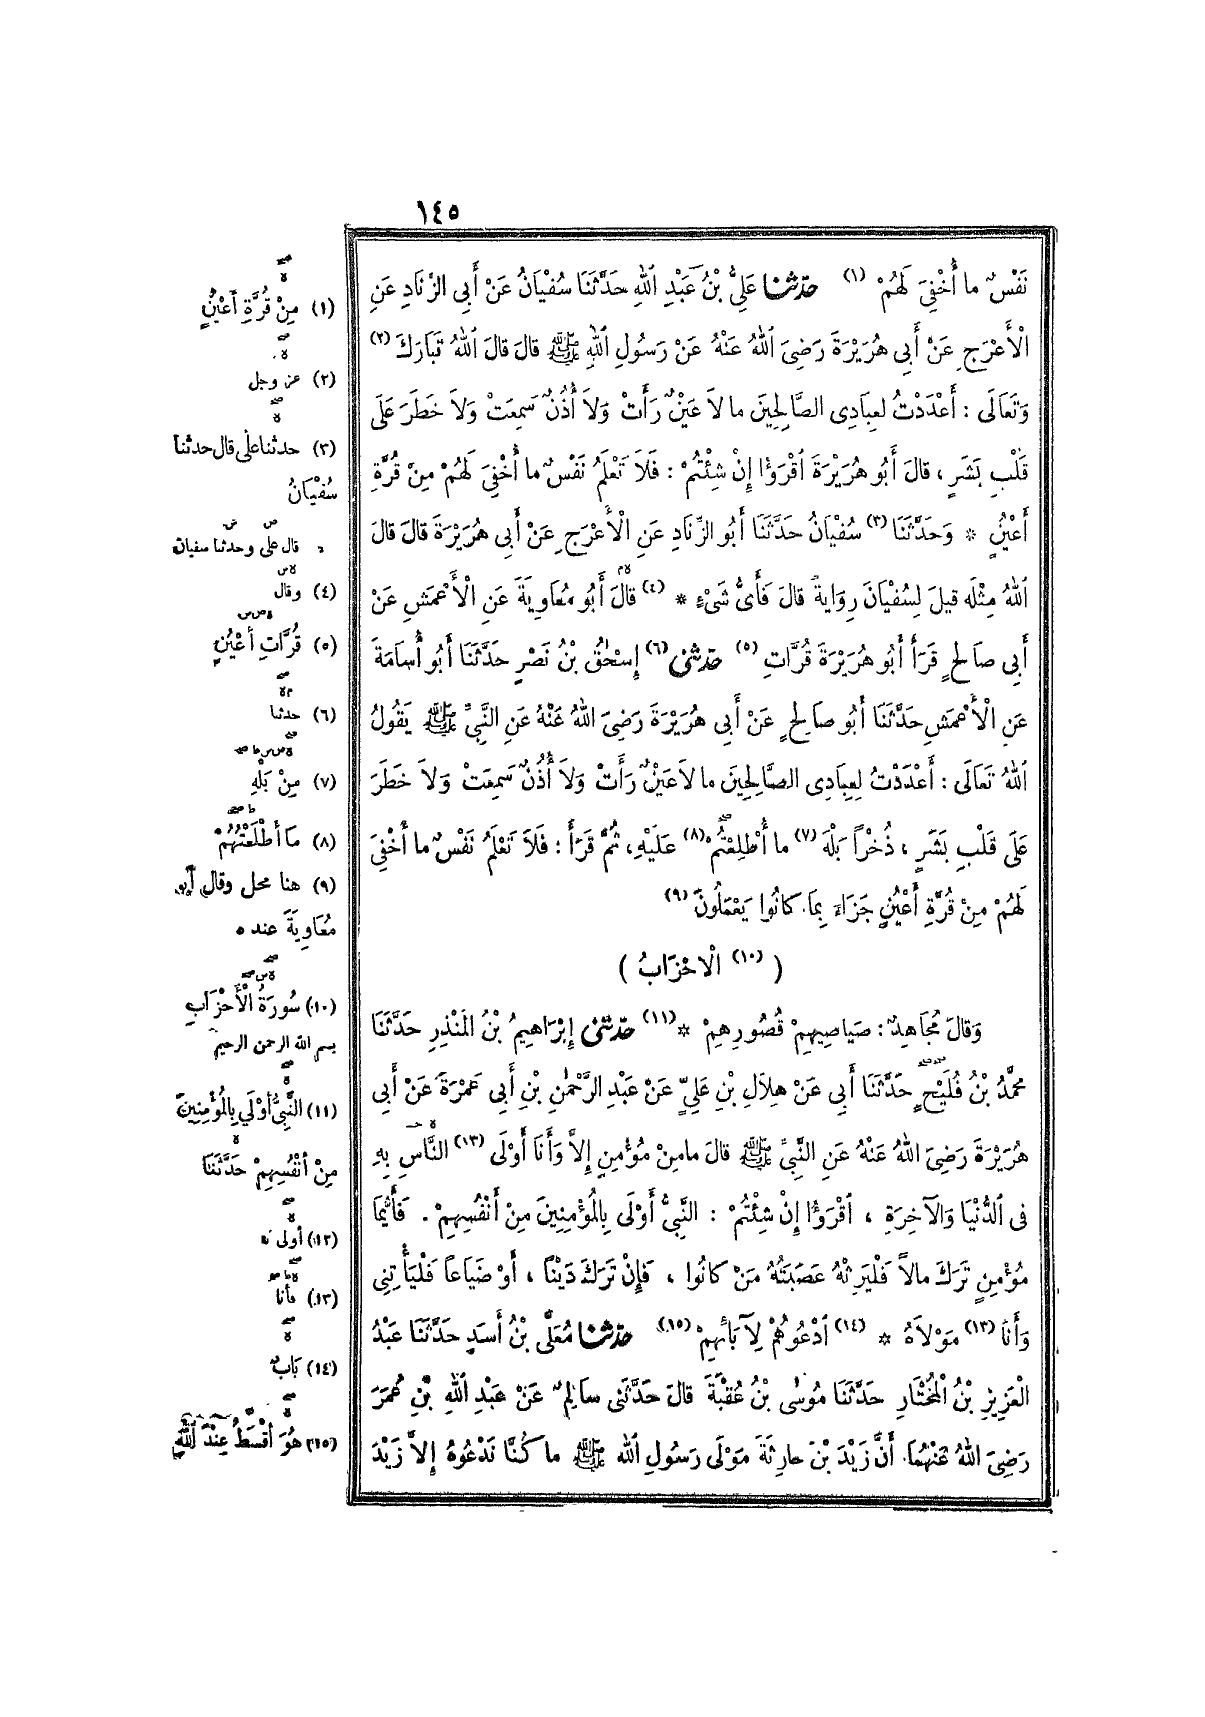 ١٤٥
نَفْسٌ ما أُخْفِيَ لَهُمْ (١) حَدَّثَنَا عَلِيُّ بْنُ عَبْدِ اللهِ حَدَّثَنَا سُفْيَانُ عَنْ أَبِي الزِّنَادِ عَنِ
الْأَعْرَجِ عَنْ أَبِي هُرَيْرَةَ رَضِيَ اللهُ عَنْهُ عَنْ رَسُولِ اللهِ ﷺ قالَ قالَ اللهُ تَبَارَكَ (٢)
وَتَعَالَى : أَعْدَدْتُ لِعِبَادِي الصَّالِحِينَ ما لاَ عَيْنٌ رَأَتْ وَلاَ أُذُنٌ سَمِعَتْ وَلاَ خَطَرَ عَلَى
قَلْبِ بَشَرٍ ، قالَ أَبُو هُرَيْرَةَ اقْرَؤُا إِنْ شِئْتُمْ : فَلاَ تَعْلَمُ نَفْسٌ ما أُخْفِيَ لَهُمْ مِنْ قُرَّةِ
أَعْيُنٍ * وَحَدَّثَنَا (٣) سُفْيَانُ حَدَّثَنَا أَبُو الزِّنَادِ عَنِ الْأَعْرَجِ عَنْ أَبِي هُرَيْرَةَ قالَ قالَ
اللهُ مِثْلَهُ قِيلَ لِسُفْيَانَ رِوَايَةً قالَ فَأَىُّ شَىْءٍ * (٤) قالَ أَبُو مُعَاوِيَةَ عَنِ الْأَعْمَشِ عَنْ
أَبِي صَالِحٍ قَرَأَ أَبُو هُرَيْرَةَ قُرَّاتِ (٥) حَدَّثَنِي (٦) إِسْحٰقُ بْنُ نَصْرٍ حَدَّثَنَا أَبُو أُسَامَةَ
عَنِ الْأَعْمَشِ حَدَّثَنَا أَبُو صَالِحٍ عَنْ أَبِي هُرَيْرَةَ رَضِيَ اللهُ عَنْهُ عَنِ النَّبِيِّ ﷺ يَقُولُ
اللهُ تَعَالَى : أَعْدَدْتُ لِعِبَادِي الصَّالِحِينَ ما لاَ عَيْنٌ رَأَتْ وَلاَ أُذُنٌ سَمِعَتْ وَلاَ خَطَرَ
عَلَى قَلْبِ بَشَرٍ ، ذُخْراً بَلْهَ (٧) ما أُطْلِعْتُمْ (٨) عَلَيْهِ ، ثُمَّ قَرَأَ : فَلاَ تَعْلَمُ نَفْسٌ ما أُخْفِيَ
لَهُمْ مِنْ قُرَّةِ أَعْيُنٍ جَزَاءً بِمَا كانُوا يَعْمَلُونَ (٩)
( (١٠) الْأَحْزَابُ )
وَقالَ مُجَاهِدٌ : صَيَاصِيهِمْ قُصُورِهِمْ * (١١) حَدَّثَنِي إِبْرَاهِيمُ بْنُ الْمُنْذِرِ حَدَّثَنَا
مُحَمَّدُ بْنُ فُلَيْحٍ حَدَّثَنَا أَبِي عَنْ هِلاَلِ بْنِ عَلِيٍّ عَنْ عَبْدِ الرَّحْمٰنِ بْنِ أَبِي عَمْرَةَ عَنْ أَبِي
هُرَيْرَةَ رَضِيَ اللهُ عَنْهُ عَنِ النَّبِيِّ ﷺ قالَ ما مِنْ مُؤْمِنٍ إِلاَّ وَأَنَا أَوْلَى (١٢) النَّاسِ بِهِ
فِي الدُّنْيَا وَالآخِرَةِ ، اقْرَؤُا إِنْ شِئْتُمْ : النَّبِيُّ أَوْلَى بِالْمُؤْمِنِينَ مِنْ أَنْفُسِهِمْ . فَأَيُّمَا
مُؤْمِنٍ تَرَكَ مالاً فَلْيَرِثْهُ عَصَبَتُهُ مَنْ كانُوا ، فَإِنْ تَرَكَ دَيْناً ، أَوْ ضَيَاعاً فَلْيَأْتِنِي
وَأَنَا (١٣) مَوْلاَهُ * (١٤) ادْعُوهُمْ لِآبَائِهِمْ (١٥) حَدَّثَنَا مُعَلَّى بْنُ أَسَدٍ حَدَّثَنَا عَبْدُ
الْعَزِيزِ بْنُ الْمُخْتَارِ حَدَّثَنَا مُوسٰى بْنُ عُقْبَةَ قالَ حَدَّثَنِي سَالِمٌ عَنْ عَبْدِ اللهِ بْنِ عُمَرَ
رَضِيَ اللهُ عَنْهُمَا أَنَّ زَيْدَ بْنَ حارِثَةَ مَوْلَى رَسُولِ اللهِ ﷺ ما كُنَّا نَدْعُوهُ إِلاَّ زَيْدَ
(١) مِنْ قُرَّةِ أَعْيُنٍ
(٢) عز وجل
(٣) حدثنا علي قال حدثنا
سُفْيَانُ
قال علي وحدثنا سفيان
(٤) وقال
(٥) قُرَّاتِ أَعْيُنٍ
(٦) حدثنا
(٧) مِنْ بَلْهِ
(٨) مَا أَطْلَعْتُهُمْ
(٩) هنا محل وقال أبو
مُعَاوِيَةَ عند ه
(١٠) سُورَةُ الْأَحْزَابِ
بسم الله الرحمن الرحيم
(١١) النَّبِيُّ أَوْلَى بِالْمُؤْمِنِينَ
مِنْ أَنْفُسِهِمْ حَدَّثَنَا
(١٢) أولى
(١٣) فأنا
(١٤) بَاب
(١٥) هُوَ أَقْسَطُ عِنْدَ اللهِ